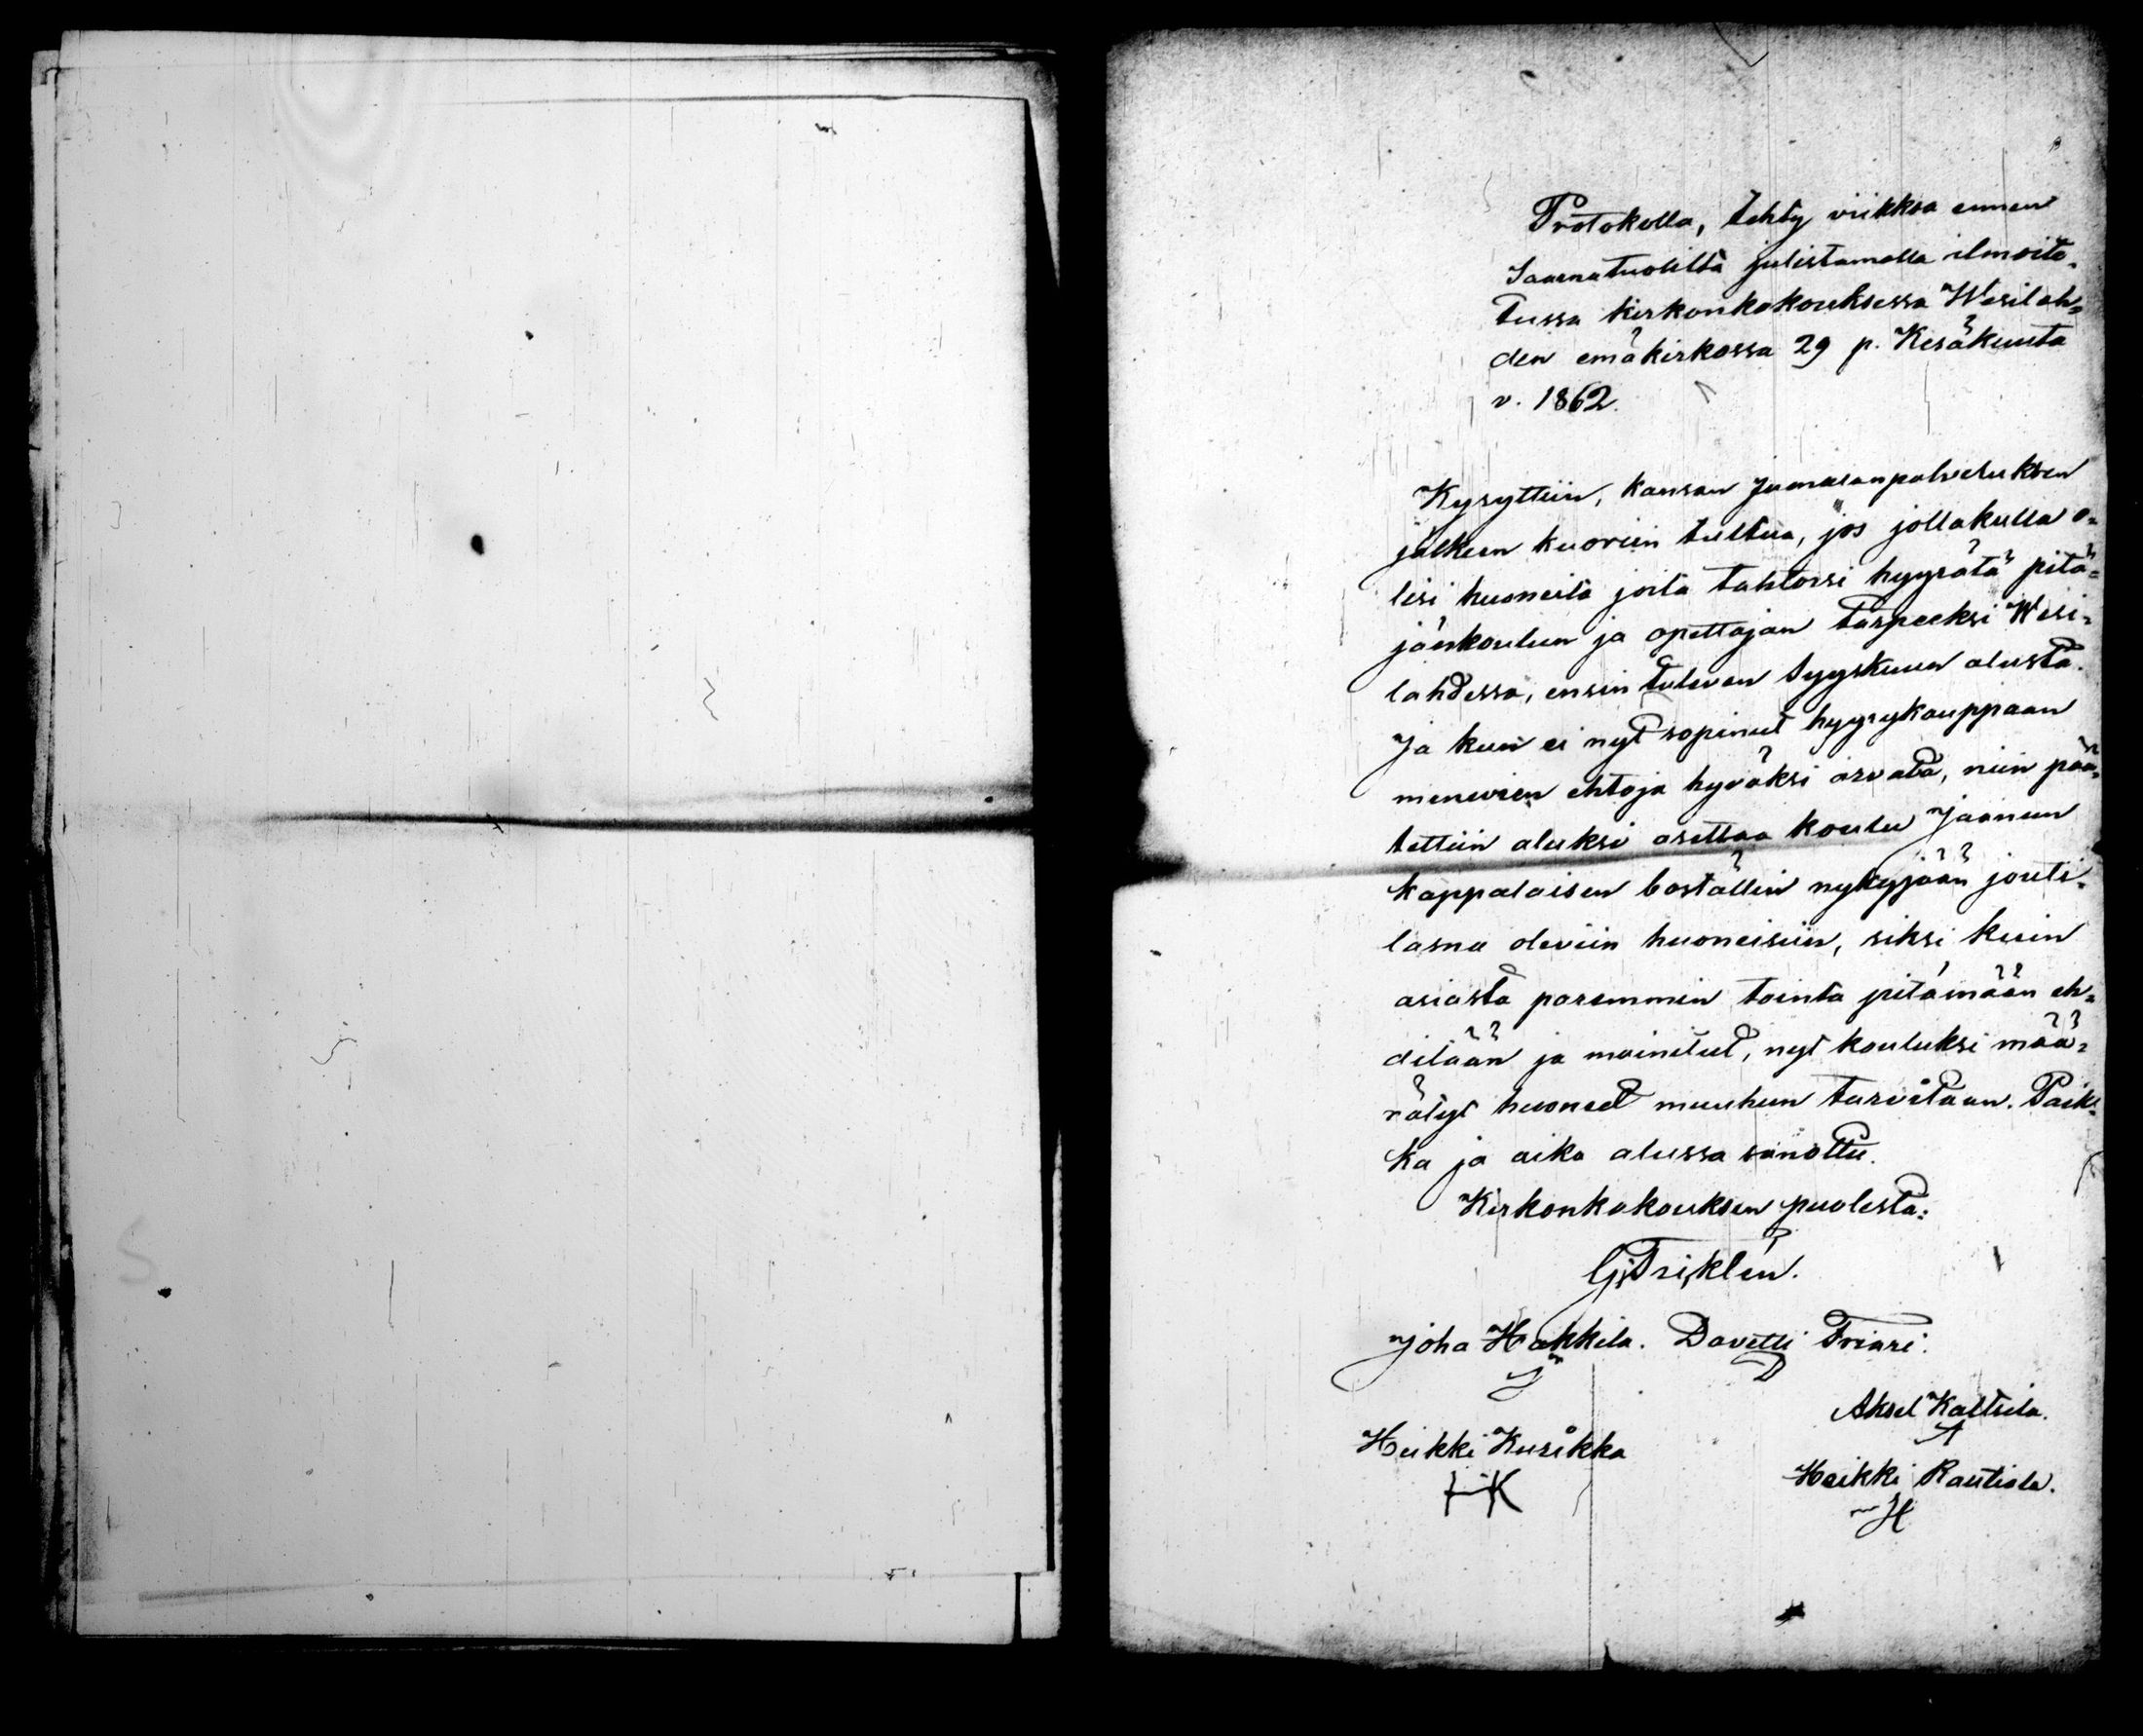 Protokolla, tehty viikkoa ennen
Saarnatuolilta julistamalla ilmoite-
tussa kirkonkokouksessa Wesilah-
den emäkirkossa 29 p. Kesäkuuta
v. 1862.
Kysyttiin, kansan Jumalanpalveluksen
jälkeen kuoriin tultua, jos jollakulla o-
lisi huoneita joita tahtoisi hyyrätä pitä-
jänkoulun ja opettajan tarpeeksi Wesi-
lahdessa, ensin tulevan Syyskuun alusta.
Ja kuin ei nyt sopinut hyyrykauppaan
menevien ehtoja hyväksi arvata, niin pää-
tettiin aluksi asettaa koulu Jaanun
kappalaisen boställin nykyjään jouti-
lasna oleviin huoneisiin, siksi kuin
asiasta paremmin tointa pitämään eh-
ditään ja mainitut, nyt kouluksi mää-
rätyt huoneet muuhun tarvitaan. Paik-
ka ja aika alussa sanottu.
Kirkonkokouksen puolesta:
G. Friklén.
Joha Hakkila. Davetti Friari.
J D
Aksel Kaltsila.
A
Heikki Kurikka
HK
Heikki Rautiala.
H